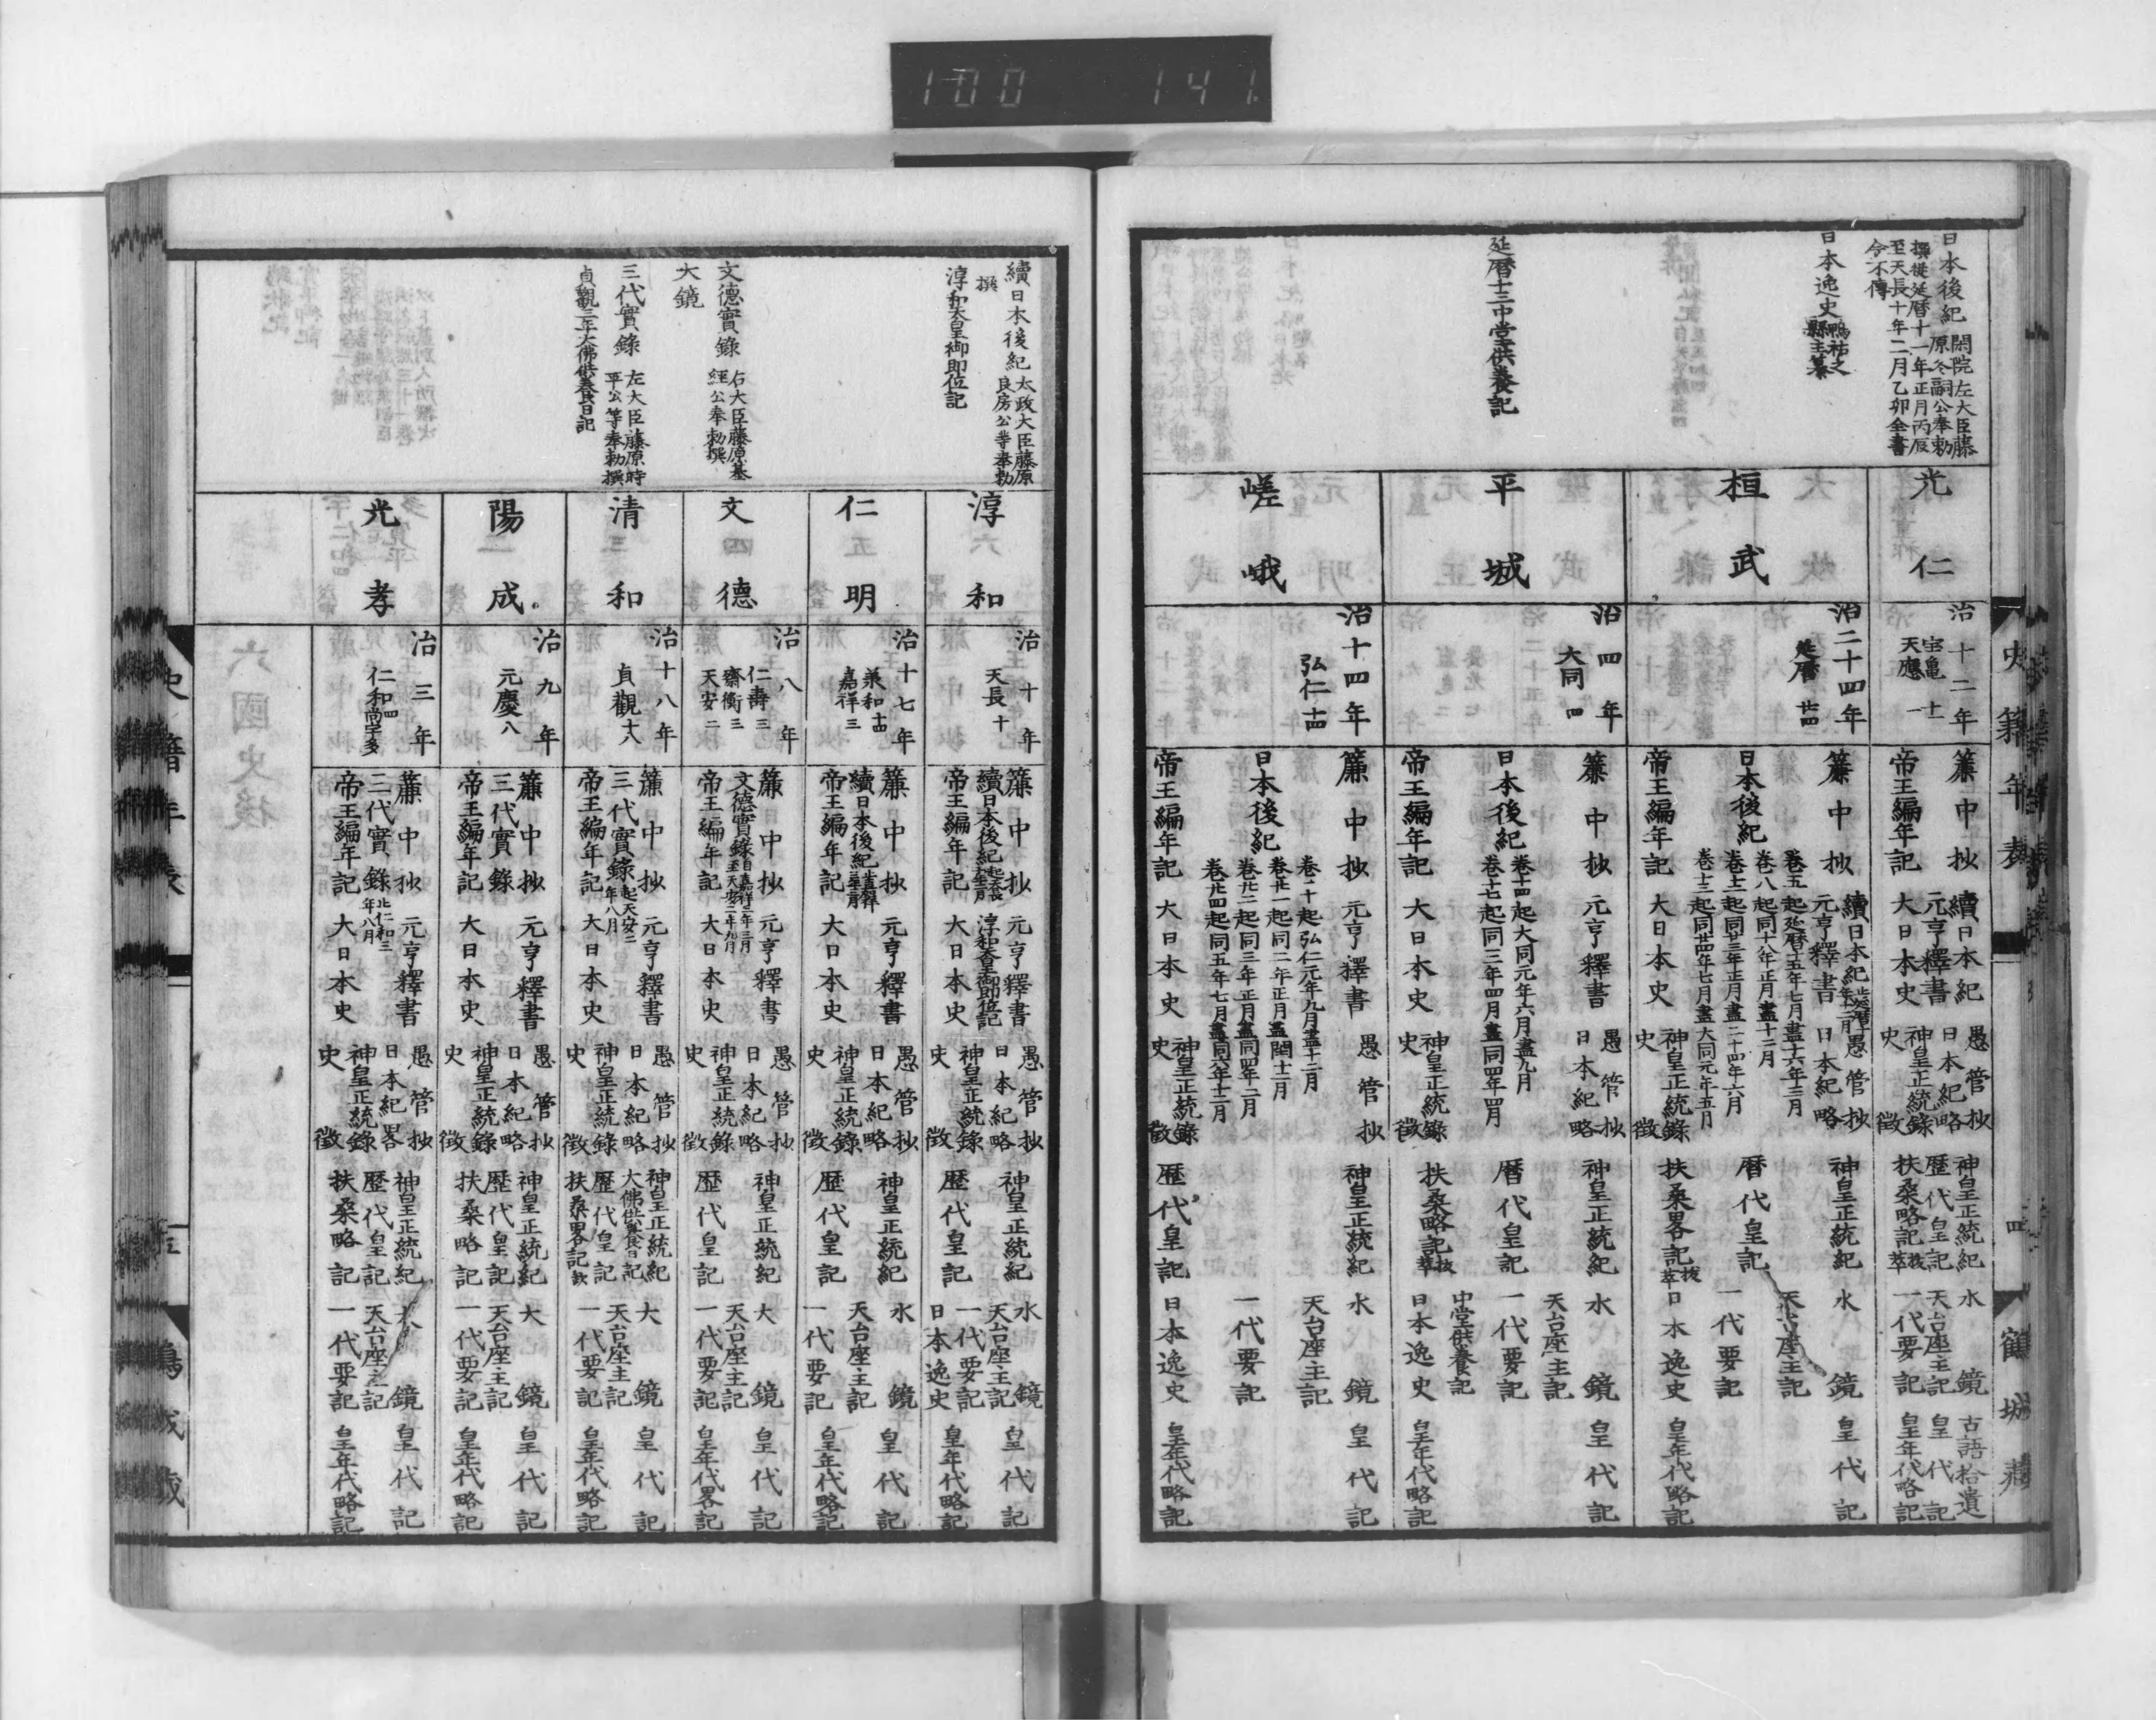 100 141
日本後紀 閑院左大臣藤原冬嗣公奉勅
撰從延暦十一年正月丙辰
至天長十年二月乙卯全書
今不傳
日本逸史 鴨祐之
縣主纂
延暦十三中堂供養記
光仁
治十二年
宝亀十一
天應一
簾中抄 續日本紀 愚管抄 神皇正統紀 水鏡 古語拾遺
元亨釋書 日本紀略 歴代皇記 天台座主記 皇代記
帝王編年記 大日本史 神皇正統錄 扶桑略記抜萃 一代要記 皇年代略記
史徴
桓武
治二十四年
延暦 廿四
簾中抄 續日本紀 止延暦十年十二月 愚管抄 神皇正統紀 水鏡 皇代記
元亨釋書 日本紀略
日本後紀 卷五起延暦十五年七月盡十六年三月
卷八起同十八年正月盡十二月
卷十二起同廿三年正月盡二十四年六月
卷十三起同廿四年七月盡大同元年五月
暦代皇記 天台座主記 一代要記
帝王編年記 大日本史 神皇正統錄 扶桑畧記抜萃 日本逸史 皇年代略記
史徴
平城
治四年
大同 四
簾中抄 元亨釋書 愚管抄 神皇正統紀 水鏡 皇代記
日本紀略 天台座主記
日本後紀 卷十四起大同元年六月盡九月
卷十七起同三年四月盡同四年四月
暦代皇記 一代要記
中堂供養記
帝王編年記 大日本史 神皇正統錄 扶桑略記抜萃 日本逸史 皇年代略記
史徴
嵯峨
治十四年
弘仁十四
簾中抄 元亨釋書 愚管抄 神皇正統紀 水鏡 皇代記
天台座主記
日本後紀 卷二十起弘仁元年九月盡十二月
卷廿一起同二年正月盡閏十二月
卷廿二起同三年正月盡同四年二月
卷廿四起同五年七月盡同六年十二月
一代要記
帝王編年記 大日本史 神皇正統錄 歴代皇記 日本逸史 皇年代略記
史徴
史籍年表 四 鶴城藏
續日本後紀 太政大臣藤原
良房公等奉勅
撰
淳和太皇御即位記
文德實錄 右大臣藤原基
經公奉勅撰
大鏡
三代實錄 左大臣藤原時
平公等奉勅撰
貞觀三年大佛供養日記
淳和
治十年
天長十
簾中抄 元亨釋書 愚管抄 神皇正統紀 水鏡 皇代記
續日本後紀 淳和太皇御即位記 日本紀略 天台座主記
帝王編年記 大日本史 神皇正統錄 歴代皇記 一代要記 皇年代略記
史徴 日本逸史
仁明
治十七年
兼和十四
嘉祥三
簾中抄 元亨釋書 愚管抄 神皇正統紀 水鏡 皇代記
續日本後紀 日本紀略 天台座主記
帝王編年記 大日本史 神皇正統錄 歴代皇記 一代要記 皇年代略記
史徴
文德
治八年
仁壽三
齋衡三
天安二
簾中抄 元亨釋書 愚管抄 神皇正統紀 大鏡 皇代記
文德實錄 自嘉祥三年三月
至天安二年九月 日本紀略 天台座主記
帝王編年記 大日本史 神皇正統錄 歴代皇記 一代要記 皇年代畧記
史徴
清和
治十八年
貞觀十八
簾中抄 元亨釋書 愚管抄 神皇正統紀 大鏡 皇代記
三代實錄 起天安二
年八月 日本紀略 大佛供養日記 天台座主記
帝王編年記 大日本史 神皇正統錄 歴代皇記 一代要記 皇年代略記
史徴 扶桑畧記欽
陽成
治九年
元慶八
簾中抄 元亨釋書 愚管抄 神皇正統紀 大鏡 皇代記
三代實錄 日本紀略 歴代皇記 天台座主記
帝王編年記 大日本史 神皇正統錄 扶桑略記 一代要記 皇年代略記
史徴
光孝
治三年
仁和四 尚字多
簾中抄 元亨釋書 愚管抄 神皇正統紀 大鏡 皇代記
三代實錄 止仁和三
年八月 日本紀畧 歴代皇記 天台座主記
帝王編年記 大日本史 神皇正統錄 扶桑略記 一代要記 皇年代略記
史徴